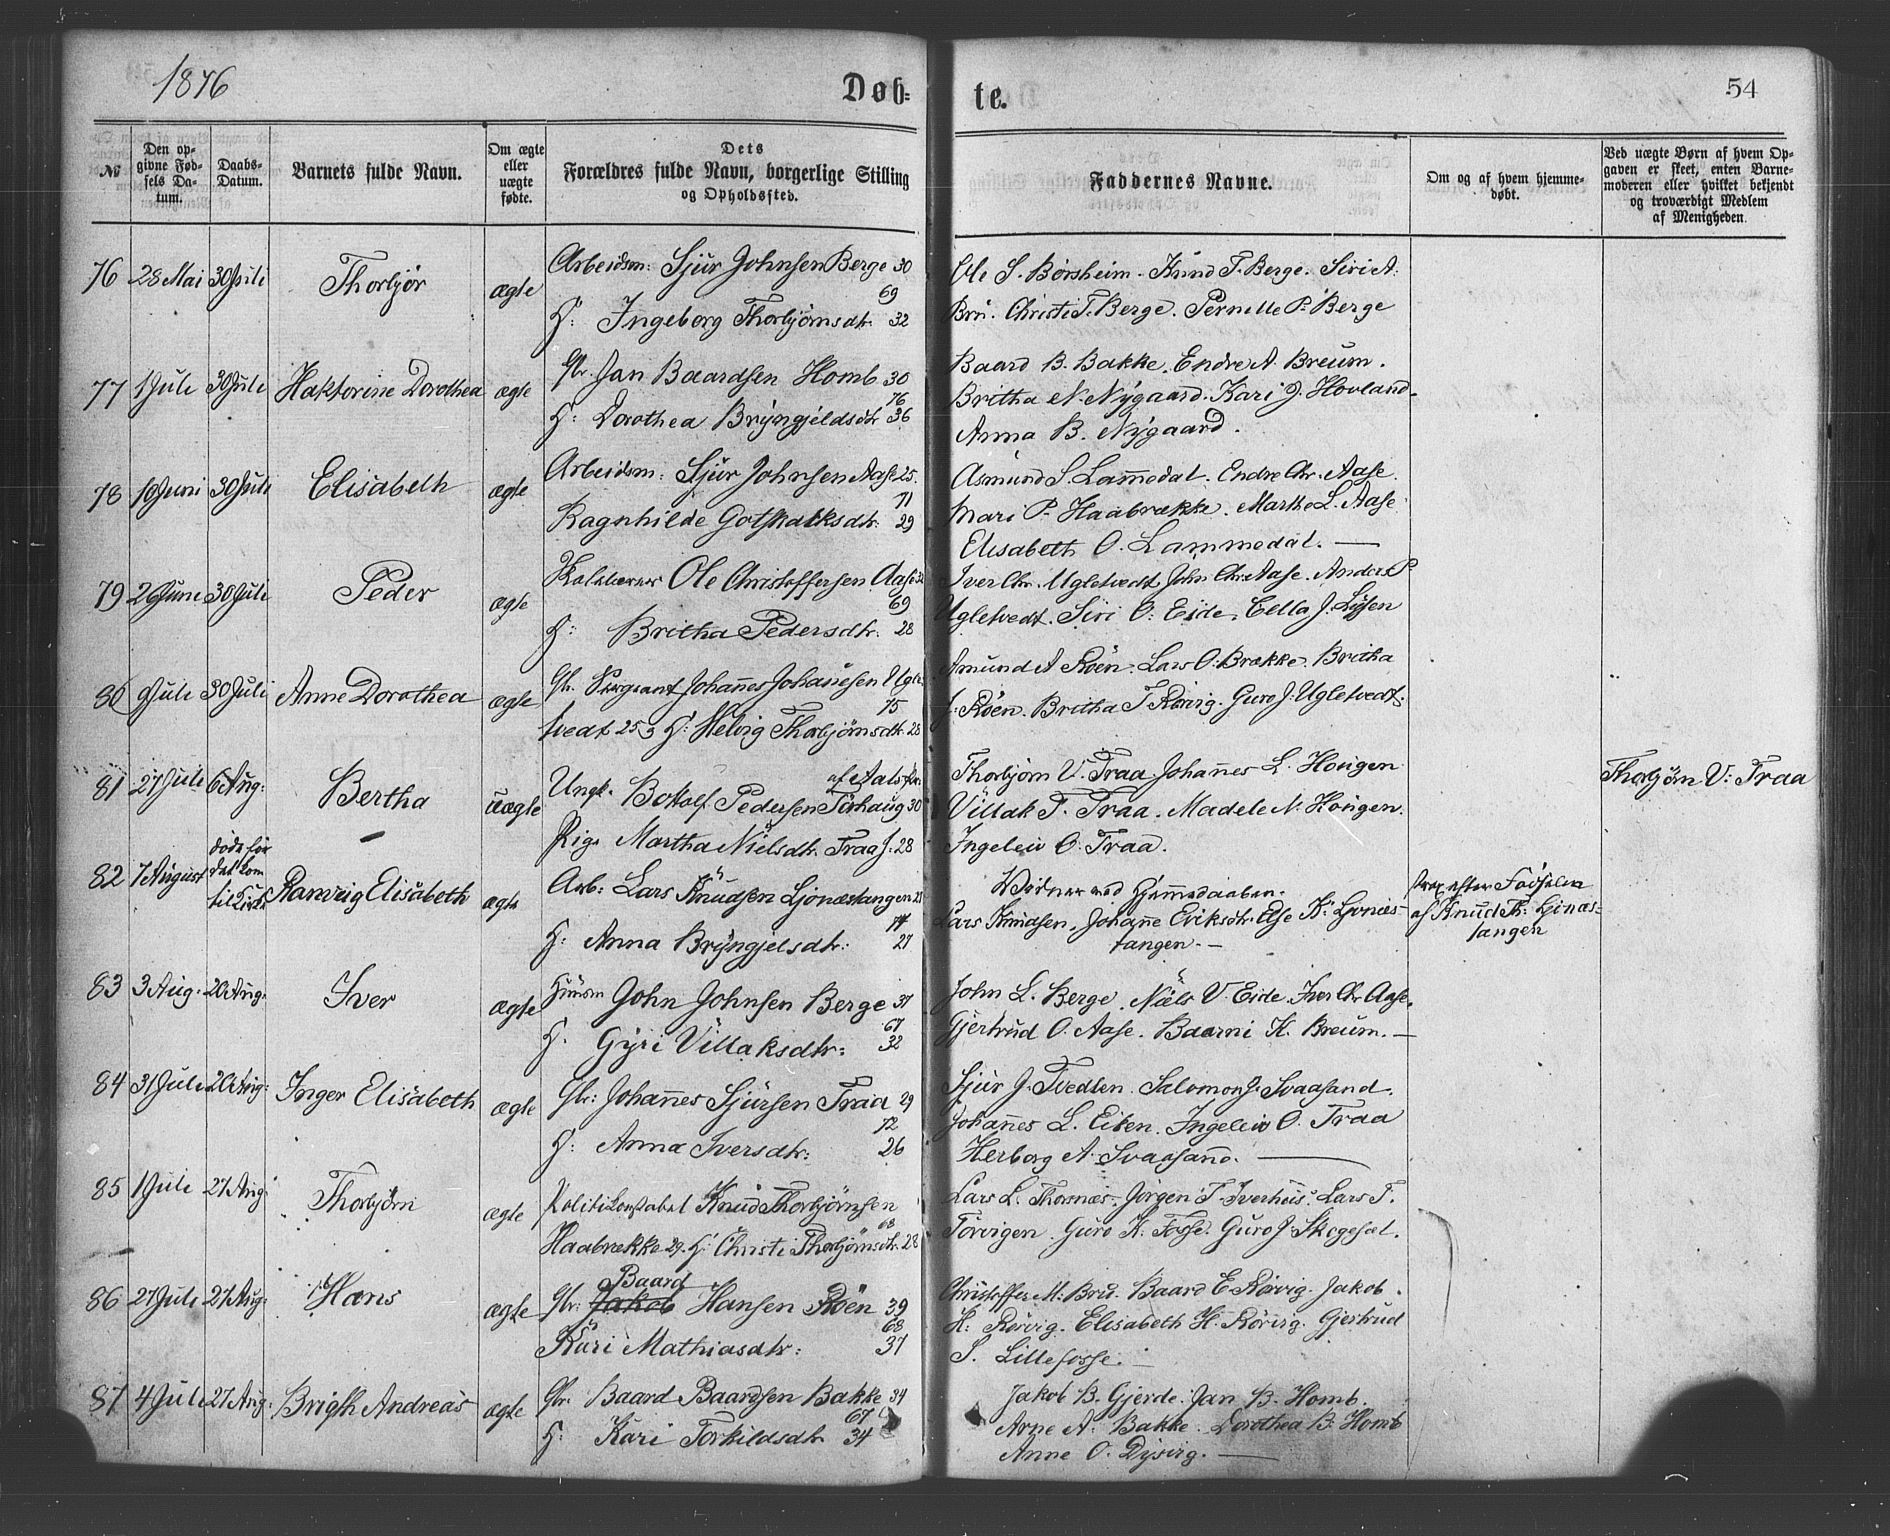 1876
Døb-
te.
54
№
Den op-
givne Fød-
sels Da-
tum.
Daabs-
Datum.
Barnets fulde Navn.
Om ægte
eller
uægte
fødte.
Dets
Forældres fulde Navn, borgerlige Stilling
og Opholdssted.
Faddernes Navne.
Om og af hvem hjemme-
døbt.
Ved uægte Børn af hvem Op-
gaven er skeet, enten Barne-
moderen eller hvilket bekjendt
og troværdigt Medlem
af Menigheden.
76 28 Mai 30 Juli Thorbjør ægte Arbeidsm: Sjur Johnsen Berge 30
69
H: Ingeborg Thorbjørnsdtr. 32
Ole S. Børsheim. Knud T. Berge. Siri A.
Bru. Christi T. Berge. Pernille P. Berge
77 1 Juli 30 Juli Haktorine Dorothea ægte Gbr. Jan Baardsen Homb 30
76
H: Dorothea Bryngjeldsdtr 36
Baard B. Bakke. Endre A. Breum.
Britha N. Nygaard. Kari J. Hovland.
Anna B. Nygaard.
78 10 Juni 30 Juli Elisabeth ægte Arbeidsm: Sjur Johnsen Aase 25.
71
Ragnhilde Gotskalksdtr. 29
Asmund S. Lammedal. Endre Chr. Aase.
Mari P. Haabrække. Martha L. Aase.
Elisabeth O. Lammedal. —
79 26 Juni 30 Juli Peder ægte Ole Christoffersen Aase
69
H: Britha Pedersdtr. 28
Iver Chr. Ugletvedt. John Chr. Aase. Anders P.
Ugletvedt. Siri O. Eide. Cella J. Lysen
80 Juli 30 Juli Anne Dorothea ægte Gbr. Sergeant Johannes Johannesen Ugle-
75
tvedt 25 & H: Helvig Thorbjørnsdtr. 28
Amund A Røen. Lars O. Brække. Britha
J. Røen. Britha T. Rørvig. Guro J. Ugletvedt.
81 27 Juli 6 Aug: Bertha uægte Ungk. Botolf Pedersen Torhaug 30
Pige Martha Nielsdtr. Traa J. 28
Thorbjørn V. Traa. Johannes L. Hougen
Villak T. Traa. Madele N. Hougen.
Ingeleiv O. Traa.
Thorbjørn V: Traa
82 7 August døde før
det kom
til Kirke Ranveig Elisabeth ægte Arb: Lars Knudsen Ljonæstangen 28
74
H: Anna Bryngjelsdtr: 27
Vidner ved Hjemmedaaben:
Lars Knudsen, Johanne Eriksdtr. Else K: Ljonæs-
tangen. —
strax efter Fødselen
af Knud Th: Ljonæs-
tangen
83 3 Aug. 20 Aug. Iver ægte Husm John Johnsen Berge 37
67
H. Gyri Villaksdtr: 32
John L. Berge. Niels V. Eide. Iver Chr Aase.
Gjertrud O. Aase. Baarni K. Breum. —
84 31 Juli 20 Aug: Inger Elisabeth ægte Gbr: Johannes Sjursen Traa 29
72
H: Anna Iversdtr: 26
Sjur J. Tvedten. Salomon J. Svaasand.
Johannes L. Eiken. Ingeleiv O. Traa
Herborg A. Svaasand. —
85 1 Juli 27 Aug: Thorbjørn ægte Politikonstabel Knud Thorbjørnsen
68
Haabrække 29. H: Christi Thorbjørnsdtr. 28
Lars L. Thornæs. Jørgen T. Iverhuus. Lars T.
Torvigen. Guro K. Fosse. Guro J. Skogesel.
86 27 Juli 27 Aug: Hans ægte Gbr: Jakob Baard Hansen Røen 39
68
Kari Mathiasdtr: 37
Christoffer M: Bru. Baard E. Rørvig. Jakob
H: Rørvig. Elisabeth H. Rørvig. Gjertrud
S. Lillefosse. —
87 4 Juli 27 Aug: Brigth Andreas ægte Gbr. Baard Baardsen Bakke 34
67
H: Kari Torkildsdtr 34
Jakob B. Gjerde. Jan B. Homb.
Arne A. Bakke. Dorothea B. Homb
Anne O. Dysvig. —